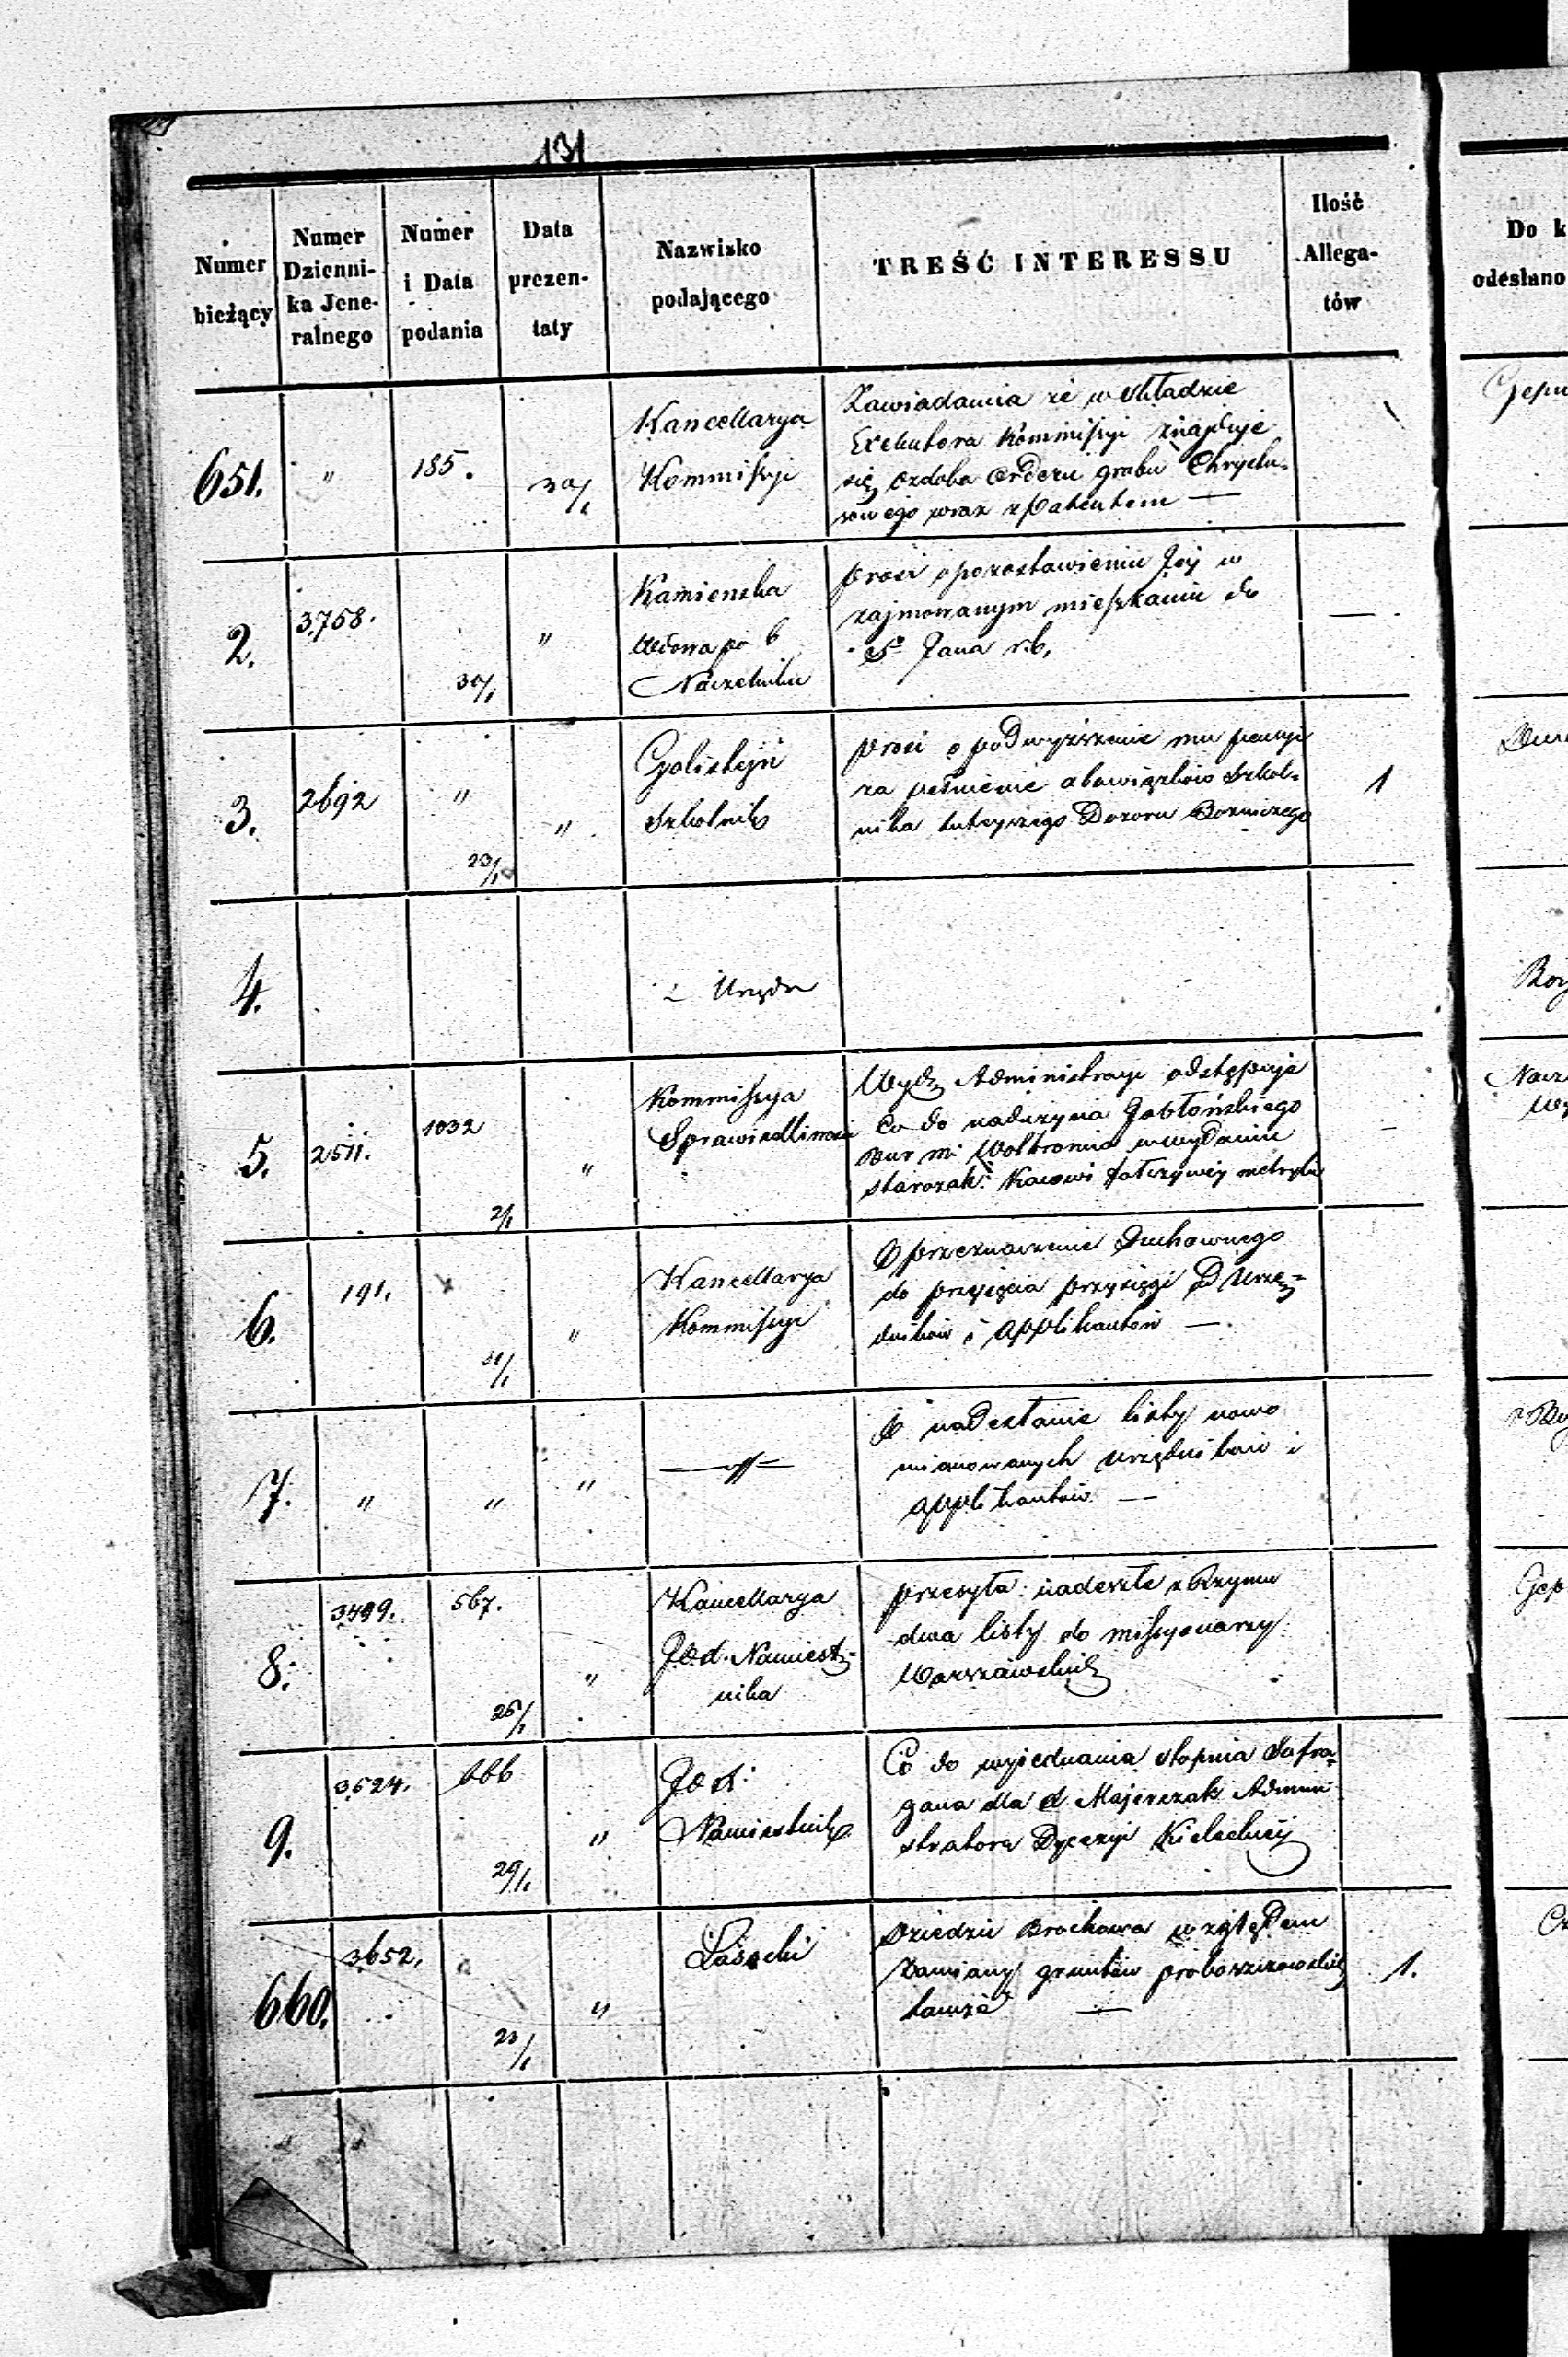 131
Numer bieżący
Numer Dzienni-
ka Jene-
ralnego
Numer
i Data
podania
Data
prezen-
taty
Nazwisko
podającego
TREŚĆ INTERESSU
Ilość
Allega-
tów
Do k
odesłano
651. " 185. 30/1
Kancellarya
Kommissyi
Zawiadamia że w składzie
Exekutora Kommissyi znajduje
się ozdoba Orderu grobu Chrystu-
sowego wraz z Patentem —
2. 3758. 30/1 "
Kamienska
Wdowa po b
Naczelniku
prosi o pozostawieniu Jej w
zajmowanym mieszkaniu do
Sº Jana r.b.
—
3. 2692 " 23/1 "
Szkolnik
prosi o podwyższenie mu pensyi
za pełnienie obowiązków Szkol-
nika tutejszego Dozoru Bożniczego
1
4.
z Urzędu
5. 2511. 1032 2/1 "
Kommissya
Sprawiedliwości
Wydz Administracyi odstępuje
Co do nadużycia Jabłońskiego
Bur mi Wolbromia w wydaniu
starozak: fałszywej metryki
-
6. 191. 31/1 "
Kancellarya
Kommissyi
O przeznaczenie Duchownego
do przyjęcia przysięgi Urzę-
dników i Applikantów —
7. " " "
—"—
O nadesłanie listy nowo
mianowanych urzędników i
applikantów —
8. 3499. 567. 26/1 "
Kancellarya
Namiest-
nika
przesyła: nadeszłe z Rzymu
dwa listy do missyonarzy
Warszawskich
9. 3624. 666 29/1 "
Namiestnik
Co do wyjednania stopnia Sufra-
gana dla Majerczak Admini
stratora Dyecezyi Kieleckiej
660. 3652. 23/1 "
Łasocki
Dziedzic Brochowa względem
zamiany gruntów proboszczowskich
tamże —
1.